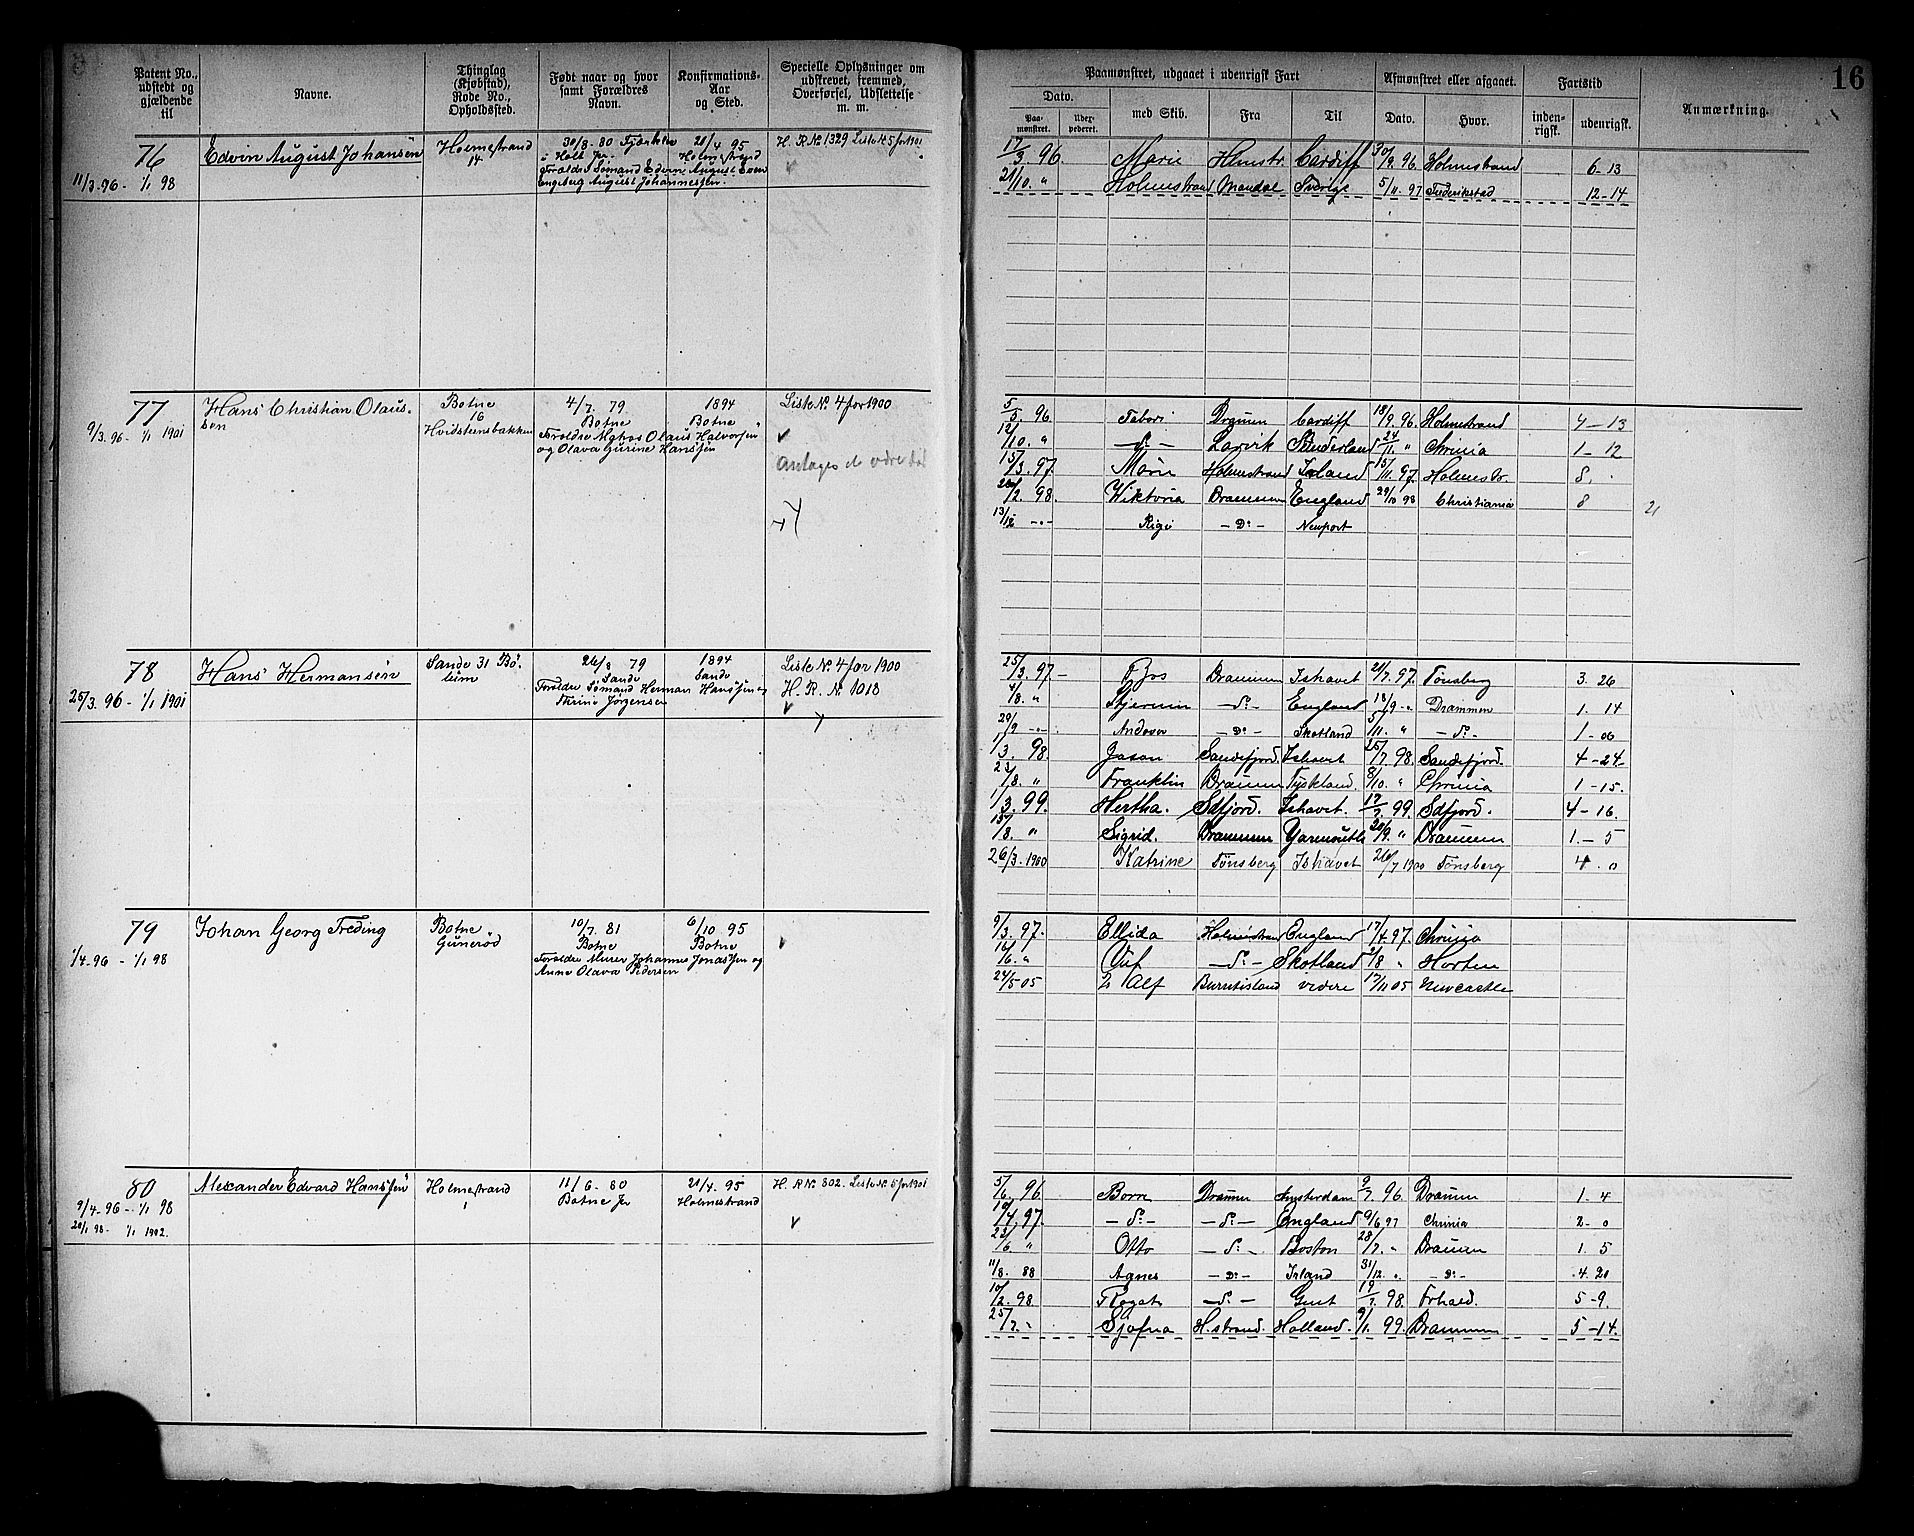 16
Patent No., udstedt og gjældende til
Navne.
Thinglag (Kjøbstad), Rode No., Opholdssted.
Født naar og hvor samt Forældres Navn.
Konfirmations-Aar og Sted.
Specielle Oplysninger om udskrevet, fremmed, Overførsel, Udslettelse m. m.
Paamønstret, udgaaet i udenrigsk Fart
Afmønstret eller afgaaet.
Fartstid
Anmærkning.
Dato.
Paa-mønstret.
Udex-pederet.
med Skib.
Fra
Til
Dato.
Hvor.
inden-rigsk.
udenrigsk.
76
11/3.96 - 1/1 98
Edvin August Johansen
Holmestrand
14
30/8. 80
i Holt
21/4. 95
Holmestrand
H. R No 1329 Liste No 5 for 1901
17/3. 96 Marie Hmstr. Cardiff 30/9. 96 Holmstrand 6-13
21/10. " Holmstrand Mandal Sverige 5/11. 97 Frederikstad 12-14
77
9/3. 96 - 1/1 1901
Hans Christian Olaussen
Botne
16
Hvidsteensbakken
4/7. 79
Botne
Forældre Olaus Halvorsen
og Olava Gurine Hanssen
1894
Botne
Liste No. 4 for 1900
5/3. 96 Tabor Dramen Cardiff 18/9. 96 Holmstrand 4-13
12/10. " - do - Larvik Sunderland 24/11. " Chrinia 1-12
15/3. 97. Marie Holmestrand Irland 15/11. 97. Holmestr. 8.
/2. 98 Wiktoria Drammen England 29/10 98 Christiania 8 21
13/12 -"- Riga - Do - Newport
78
25/3. 96 - 1/1 1901
Hans Hermansen
Sande 31
26/8 79
Sande
Forældre Sømand Herman Hanssen og
Thrine Jørgensen
1894
Sande
Liste No. 4 for 1900
H. R. No 1018
25/3. 97. - Drammen Ishavet 21/7. 97. Tønsberg 3. 26
4/8. " Stjernen - do - England 18/9 -" Drammen 1. 14
29/9 -"- - Do - Skotland 5/11. " - do - 1-06
1/3. 98 Jason Sandefjord. Ishavet 25/7. 98. Sandefjord. 4-24
23/8. " Franklin Drammen Tyskland. 8/10. " Chrinia 1-15.
1/3. 99. Hertha. Sdfjord. Ishavet. 17/7. 99. Sdfjord. 4-16.
15/8. " Sigrid. Drammen Yarmouth 20/9. " Drammen 1.-5
26/3. 1900 Katrine Tønsberg Ishavet 26/7 1900 Tønsberg 4. 0
79
1/4. 96 - 1/1 98
Johan Georg Freding
Botne
Gunerød
10/7. 81
Botne
Forældre Murer Johannes Jonassen og
Anne Olava Pedersen
6/10. 95
Botne
9/3. 97. Ellida Holmestrand England 17/4. 97. Chrinia
16/6. " Ulf - do - Skotland /8 " Horten
24/5 05 Alf Burntisland videre 17/11 05 Newcastle
80
9/4. 96 - 1/1 98
20/1 98 - 1/1 1902.
Alexander Edvard Hanssen
Holmestrand
1
11/6 - 80
Botne
21/4. 95
Holmestrand
H. R No. 802. Liste No. 5 for 1901
5/6. 96. Drammen Amsterdam 9/7. 96. Drammen 1. 4
10/4. 97. - do - - do - England 9/6 97 Chrinia 2-0
23/6 " Otto - do - Boston 28/7. " Drammen 1. 5
11/8. 88 Agnes - Do - Irland 31/12. " - Do - 4. 20
10/2. 98 - do - Gent 19/7. 98. Frhald. 5-9.
25/7. " Sjøfna H.strand. Holland. 9/1. 99. Drammen 5-14.